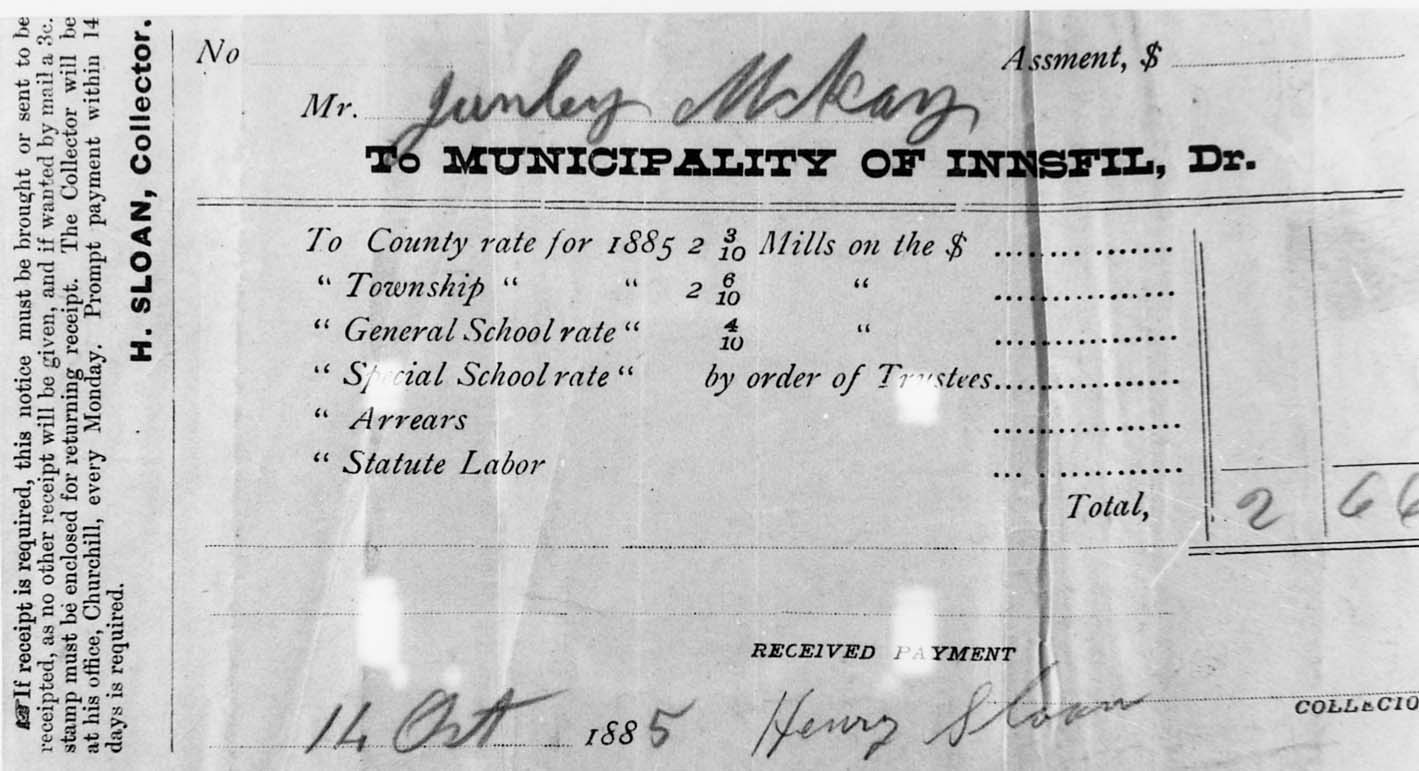 If receipt is required, this notice must be brought or sent to be
receipted, as no other receipt will be given, and if wanted by mail a 3c.
stamp must be enclosed for returning receipt. The Collector will be
at his office, Churchill, every Monday. Prompt payment within 14
days is required.
H. SLOAN, Collector.
No Assment, $
Mr. McKay
To MUNICIPALITY OF INNSFIL, Dr.
To County rate for 1885 2 3/10 Mills on the $
" Township " " 2 6/10 "
" General School rate " 4/10 "
" Special School rate " by order of Trustees
" Arrears
" Statute Labor
Total, 2 66
RECEIVED PAYMENT
14 Oct 1885 Henry Sloan COLLECTO